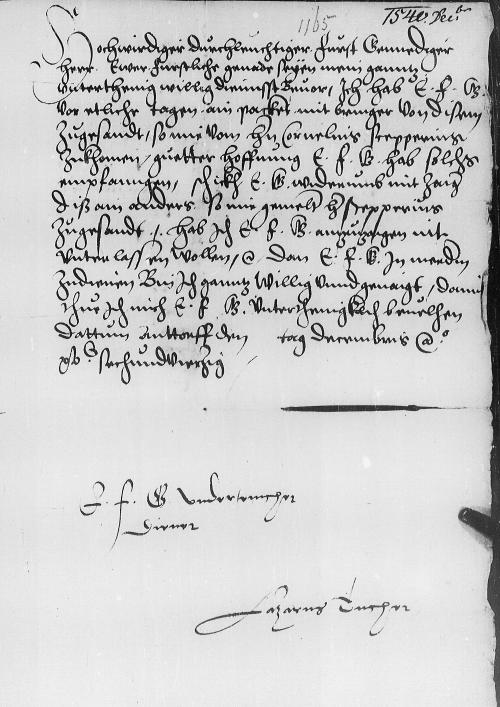 1165
1546 Decb
Hochwirdiger durchleuchtiger furst Genediger
herr. Ewer furstliche genade seyen mein ganntz
unterthenig willig diennst beuor, Ich hab E. f. G.
vor etliche tagen ain packet mit bringer von disem
zugesandt, so mir von hn Cornelius Scepperius
zukhomen, guetter hoffnung E. f. G. hab solchs
empfanngen, schickh E. G. widerumb mit
diß ain anders so mir gemelt h Scepperius
zugesandt. hab Ich E. f. G. antzuzaigen nit
unterlassen wollen, @ dan E. f. G. In merem
zudienen Bin Ich ganntz willig vnnd genaigt, damit
thue Ich mich E. f. G. vnterthenigklich beuelhen
dattum Anttorff den tag decembris @o
xvc sechundvierzig
E. f. G vndertenicher
Diener
Lazarus Tucher